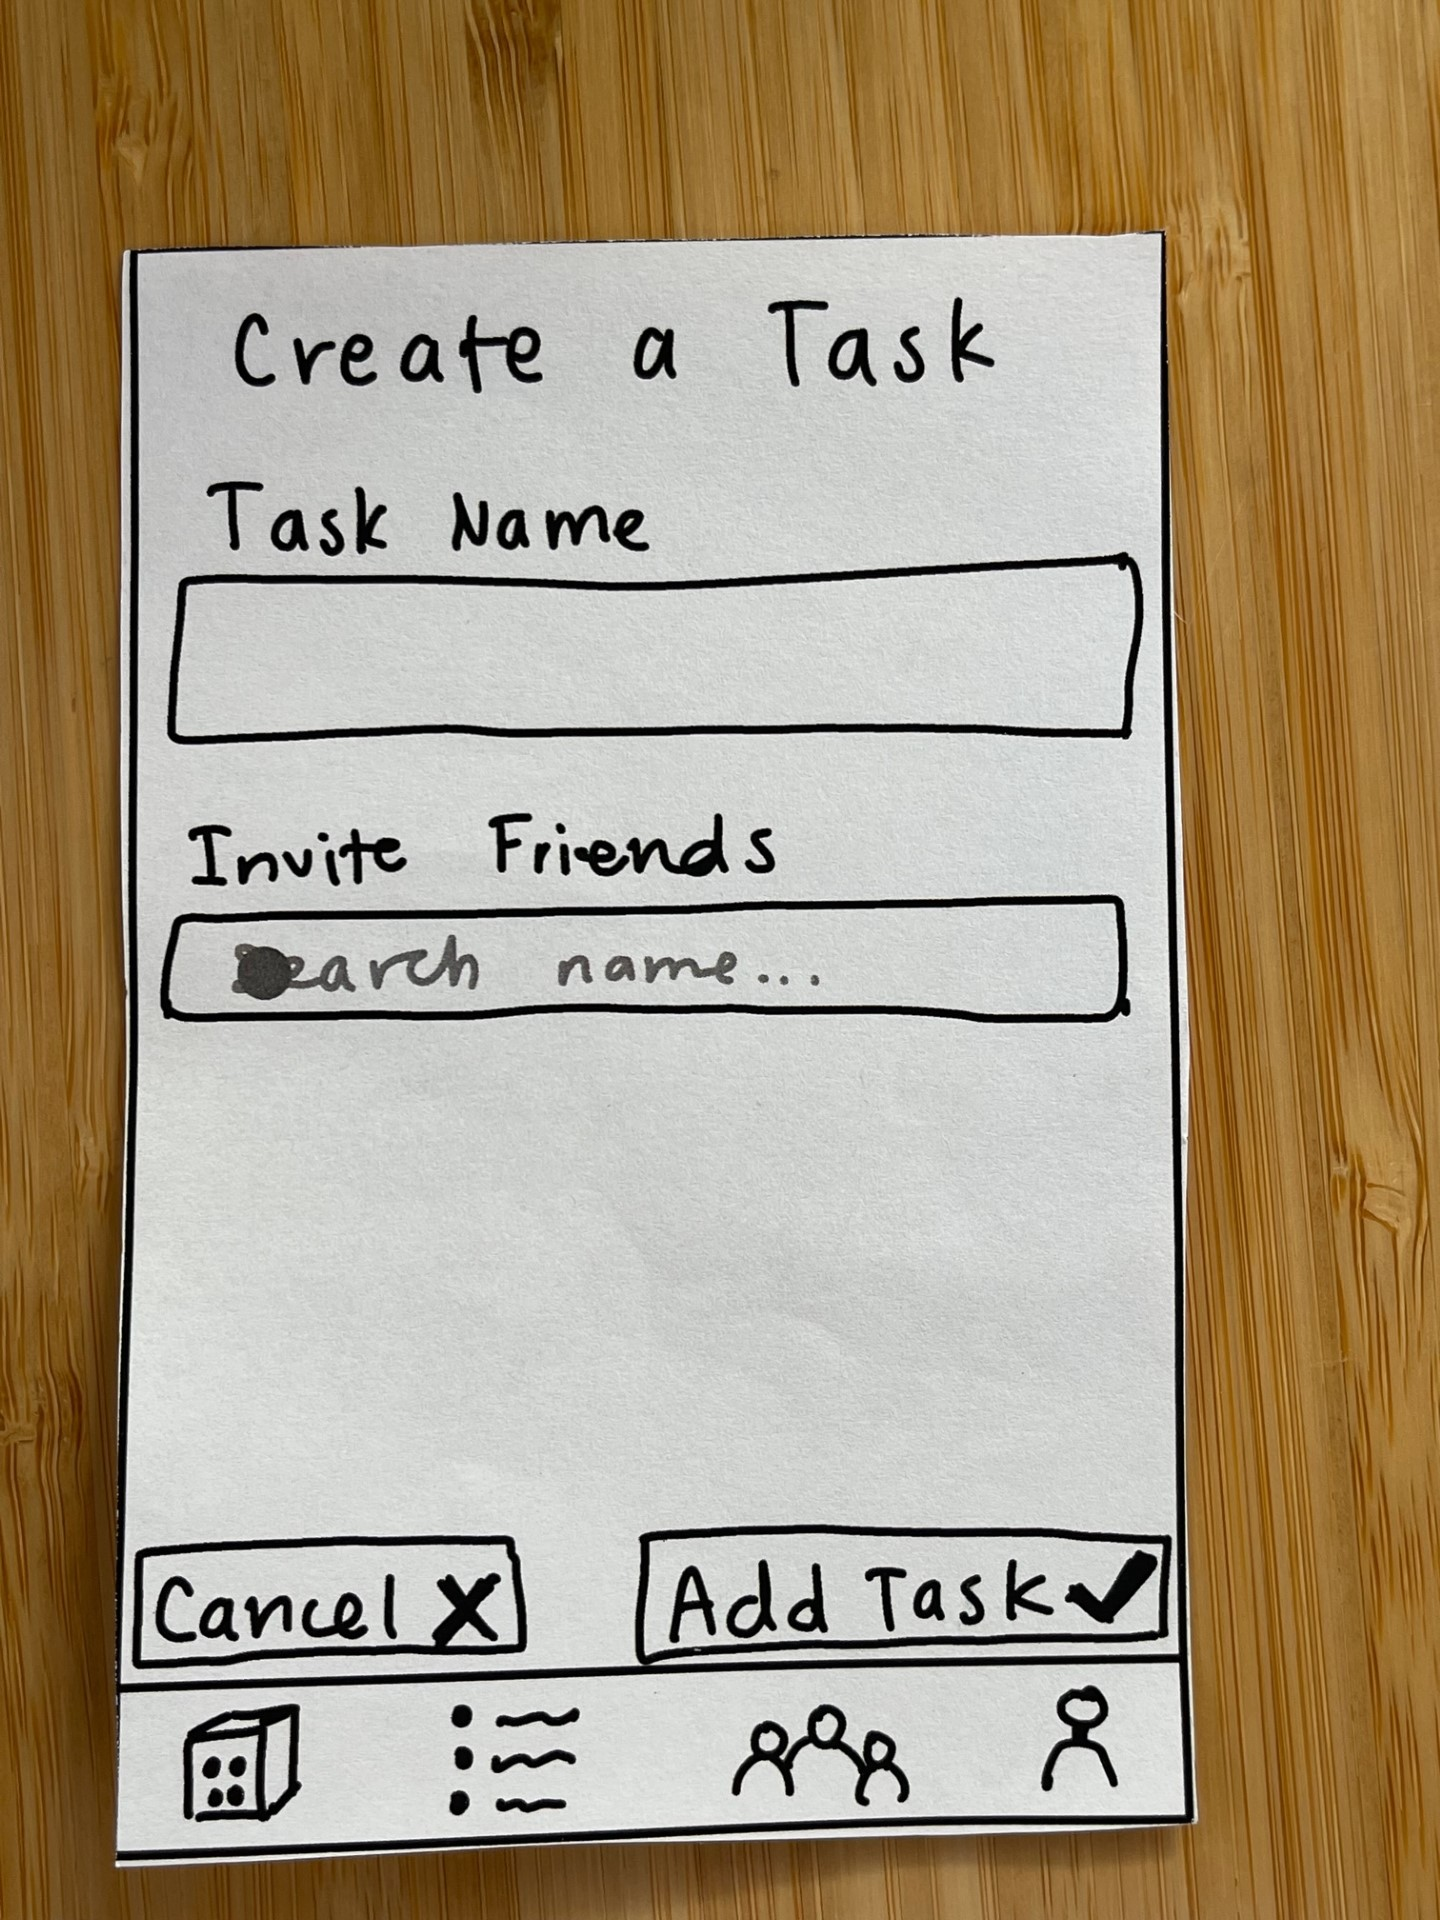 Create a Task
Task Name
Invite Friends
Search name...
Cancel X
Add Task ✓